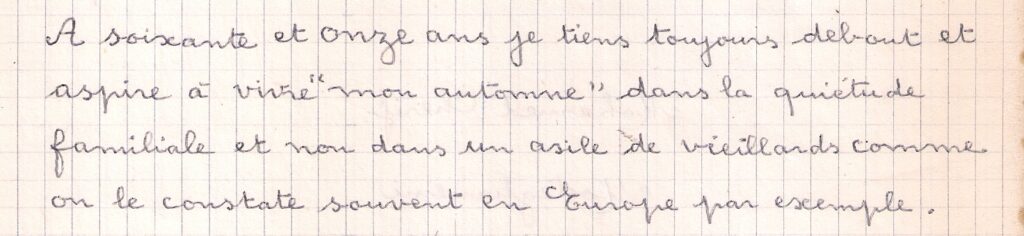 A soixante et onze ans je tiens toujours debout et
aspire à vivre "mon automne" dans la quiétude
familiale et non dans un asile de vieillards comme
on le constate souvent en Europe par exemple.